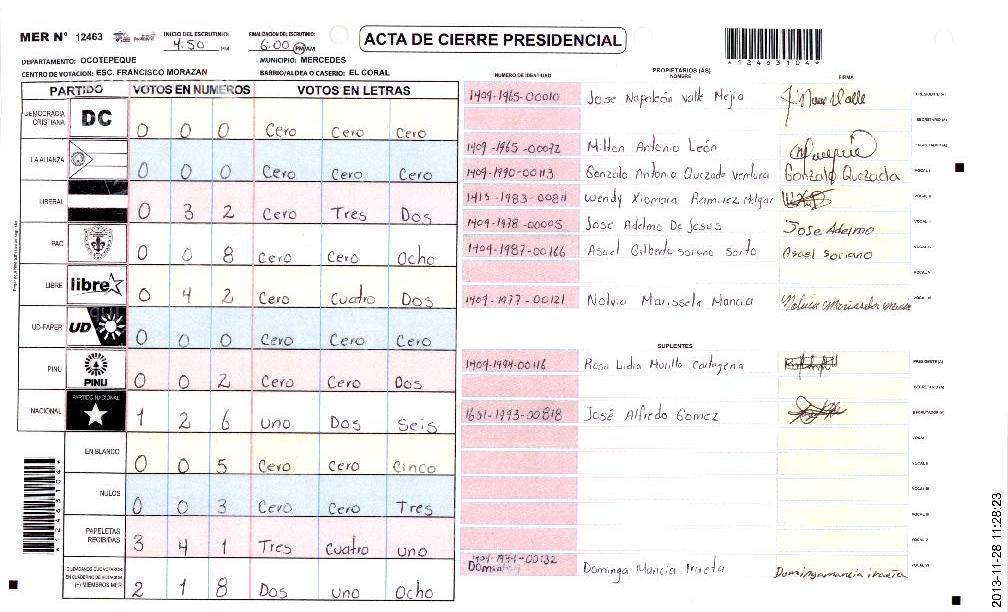 MER N° 12463 INICIO DEL ESCRUTINIO: 4:50 PM FINALIZACION DEL ESCRUTINIO: 6:00 PM AM ACTA DE CIERRE PRESIDENCIAL
*12463104*
DEPARTAMENTO: OCOTEPEQUE MUNICIPIO: MERCEDES
CENTRO DE VOTACION: ESC. FRANCISCO MORAZAN BARRIO/ALDEA O CASERIO: EL CORAL
PARTIDO VOTOS EN NUMEROS VOTOS EN LETRAS
DEMOCRACIA CRISTIANA DC 0 0 0 Cero Cero Cero
LA ALIANZA 0 0 0 Cero Cero Cero
LIBERAL 0 3 2 Cero Tres Dos
PAC 0 0 8 Cero Cero Ocho
LIBRE libre 0 4 2 Cero Cuatro Dos
UD-FAPER UD 0 0 0 Cero Cero Cero
PINU PINU 0 0 2 Cero Cero Dos
NACIONAL PARTIDO NACIONAL 1 2 6 uno Dos Seis
EN BLANCO 0 0 5 Cero Cero Cinco
NULOS 0 0 3 Cero Cero Tres
PAPELETAS RECIBIDAS 3 4 1 Tres Cuatro uno
CIUDADANOS QUE VOTARON EN CUADERNO DE VOTACION (+) MIEMBROS MER 2 1 8 Dos uno Ocho
*12463104*
NUMERO DE IDENTIDAD PROPIETARIOS (AS) NOMBRE FIRMA
1409-1965-00010 Jose Napoleón Valle Mejia PRESIDENTE (A)
SECRETARIO (A)
1409-1965-00072 Milton Antonio León ESCRUTADOR (A)
1409-1990-00113 Gonzalo Antonio Quezada Ventura Gonzalo Quezada VOCAL I
1413-1983-00811 Wendy Xiomara Ramirez Melgar VOCAL II
1409-1978-00005 Jose Adelmo De Jesus Jose Adelmo VOCAL III
1409-1987-00166 Asael Gilberto Soriano Sorto Asael Soriano VOCAL IV
VOCAL V
1409-1977-00121 Nolvia Marissela Mancia VOCAL VI
SUPLENTES
1409-1994-00116 Rosa Lidia Murillo Cartagena PRESIDENTE (A)
SECRETARIO (A)
1651-1993-00818 José Alfredo Gomez ESCRUTADOR (A)
VOCAL I
VOCAL II
VOCAL III
VOCAL IV
VOCAL V
Dominga Mancia Iraeta Domingamancia iraeta VOCAL VI
2013-11-28 11:28:23